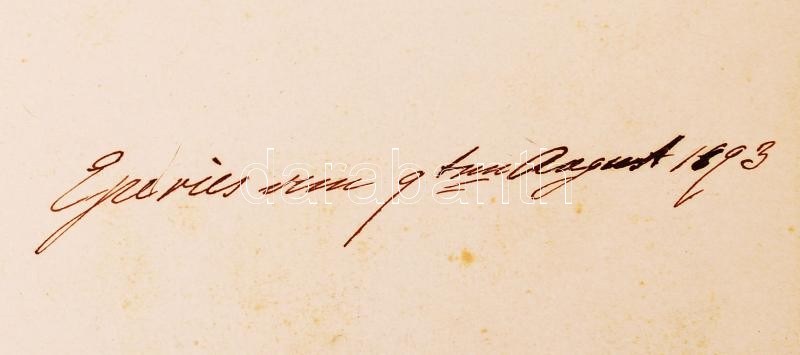 Eperies den 9ten August 1893
darabanth